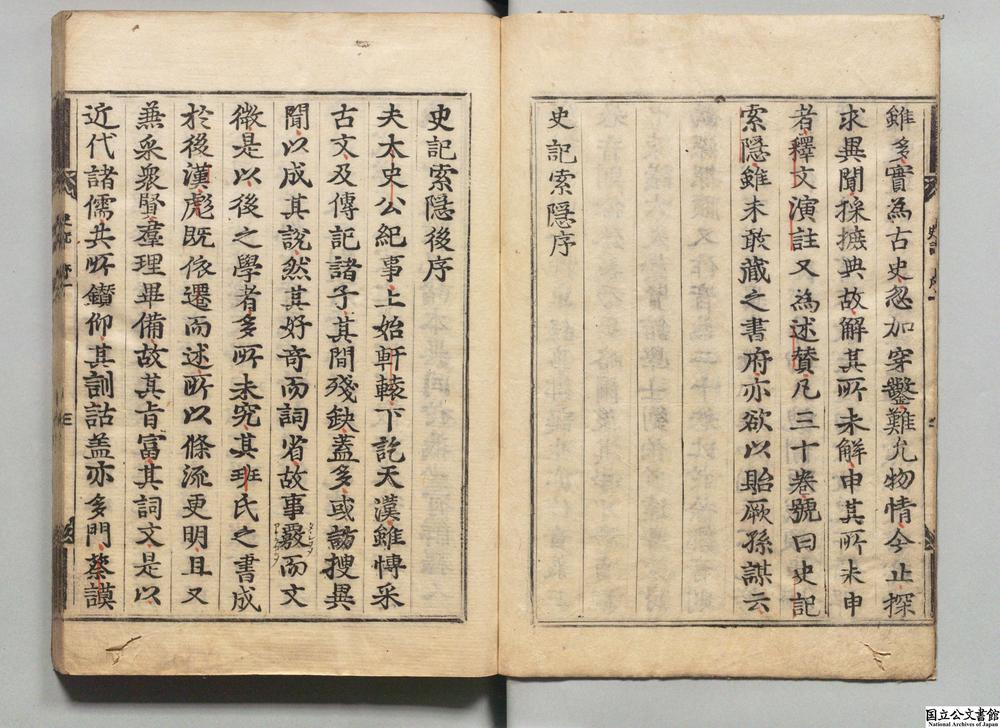 雖多實爲古史忽加穿鑿難允物情今止探
求異聞採摭典故解其所未解申其所未申
者釋文演註又爲述賛凡三十卷號曰史記
索隱雖未敢藏之書府亦欲以貽厥孫謀云
史記索隱序
史記索隱後序
夫太史公紀事上始軒轅下訖天漢雖愽采
古文及傳記諸子其間殘缺蓋多或訪搜異
聞以成其說然其好奇而詞省故事覈而文
微是以後之學者多所未究其班氏之書成
於後漢彪旣依遷而述所以條流更明且又
兼采衆賢羣理畢備故其旨富其詞文是以
近代諸儒共所鑽仰其訓詁盖亦多門蔡謨
国立公文書館
National Archives of Japan